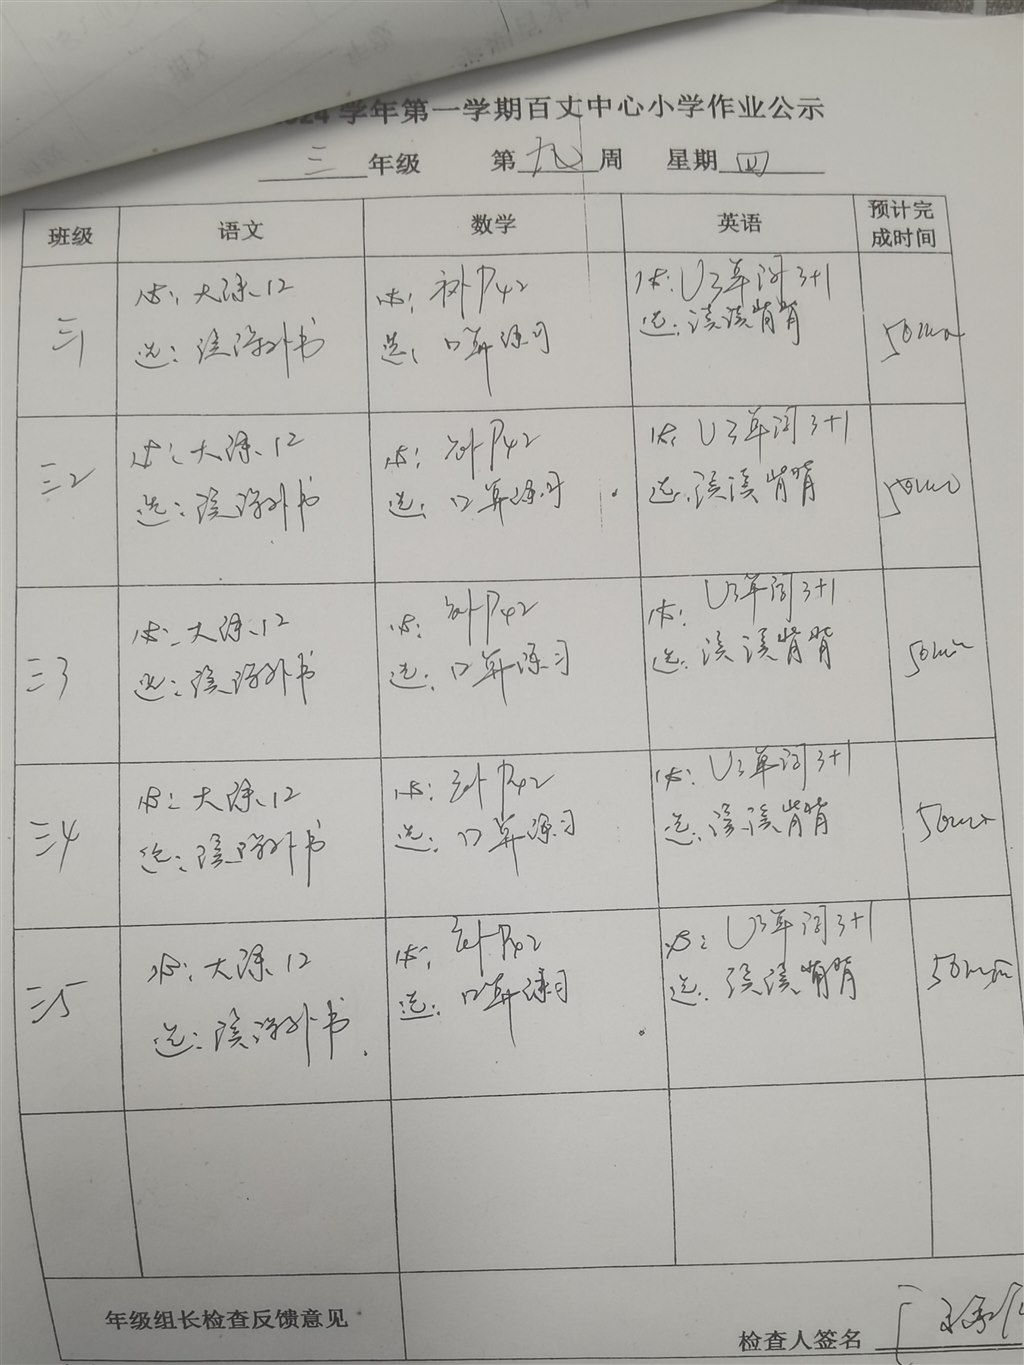 24 学年第一学期百丈中心小学作业公示
三 年级 第 九 周 星期 四
班级 语文 数学 英语 预计完成时间
三1
必: 大课.12
选: 读课外书
必: 补P42
选: 口算练习
必: U3单词3+1
选: 读读背背
50min
三2
必: 大课.12
选: 读课外书
必: 补P42
选: 口算练习
必: U3单词3+1
选: 读读背背
50min
三3
必: 大课.12
选: 读课外书
必: 补P42
选: 口算练习
必: U3单词3+1
选: 读读背背
50min
三4
必: 大课.12
选: 读课外书
必: 补P42
选: 口算练习
必: U3单词3+1
选: 读读背背
50min
三5
必: 大课.12
选: 读课外书.
必: 补P42
选: 口算练习
必: U3单词3+1
选: 读读背背
50min
年级组长检查反馈意见
检查人签名